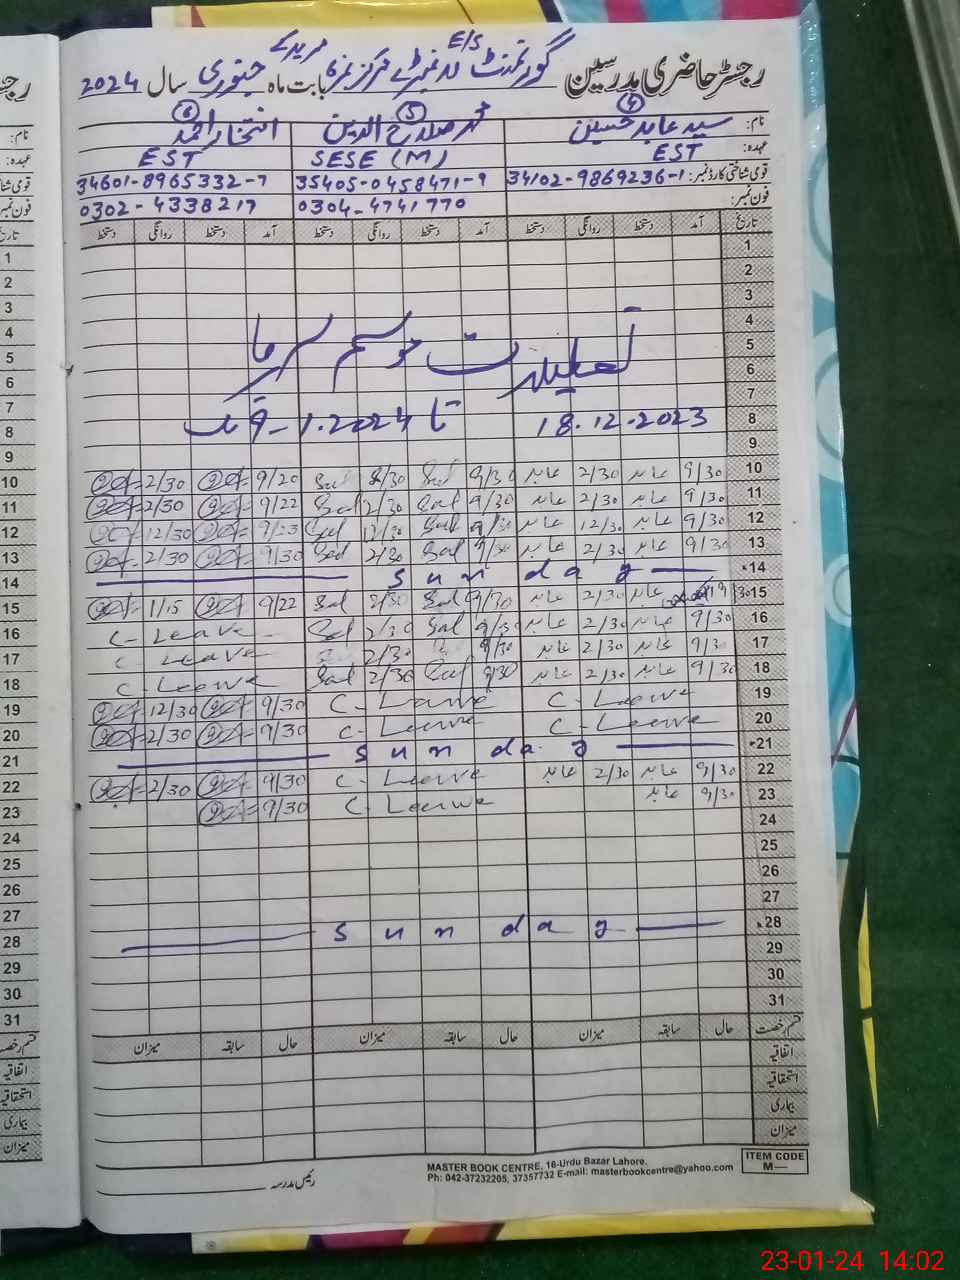 رجسٹر حاضری مدرسین گورنمنٹ E/S مرکز نمبر 6 مریدکے بابت ماہ جنوری سال 2024
④ ⑤ ⑥
نام: سید عابد حسین محمد صلاح الدین افتخار احمد
عہدہ: EST SESE (M) EST
قومی شناختی کارڈ نمبر: 34102-9869236-1 35405-0458471-9 34601-8965332-7
فون نمبر: 0304-4741770 0302-4338217
تاریخ آمد دستخط روانگی دستخط آمد دستخط روانگی دستخط آمد دستخط روانگی دستخط
1
2
3
4
تعطیلات موسم سرما
5
6
7
8 18.12.2023 تا 9-1.2024 تک
9
10 9/30 عابد 2/30 عابد 9/30 2/30 9/20 2/30
11 9/30 عابد 2/30 عابد 9/30 2/30 9/22 2/30
12 9/30 عابد 12/30 عابد 9/30 12/30 9/23 12/30
13 9/30 عابد 2/30 عابد 9/30 2/30 9/30 2/30
14 Sunday
15 9/30 عابد 2/30 عابد 9/30 2/30 9/22 1/15
16 9/30 عابد 2/30 عابد 9/30 2/30 C-Leave
17 9/30 عابد 2/30 عابد 9/30 2/30 C-Leave
18 9/30 عابد 2/30 عابد 9/30 2/30 C-Leave
19 C-Leave C-Leave 9/30 12/30
20 C-Leave C-Leave 9/30 2/30
21 Sunday
22 9/30 عابد 2/30 عابد C-Leave 9/30 2/30
23 9/30 عابد C-Leave 9/30
24
25
26
27
28 Sunday
29
30
31
قسم رخصت حال سابقہ میزان حال سابقہ میزان حال سابقہ میزان
اتفاقیہ
استحقاقیہ
بیماری
میزان
رئیس مدرسہ
MASTER BOOK CENTRE, 16-Urdu Bazar Lahore,
Ph: 042-37232205, 37357732 E-mail: masterbookcentre@yahoo.com
ITEM CODE
M—
23-01-24 14:02